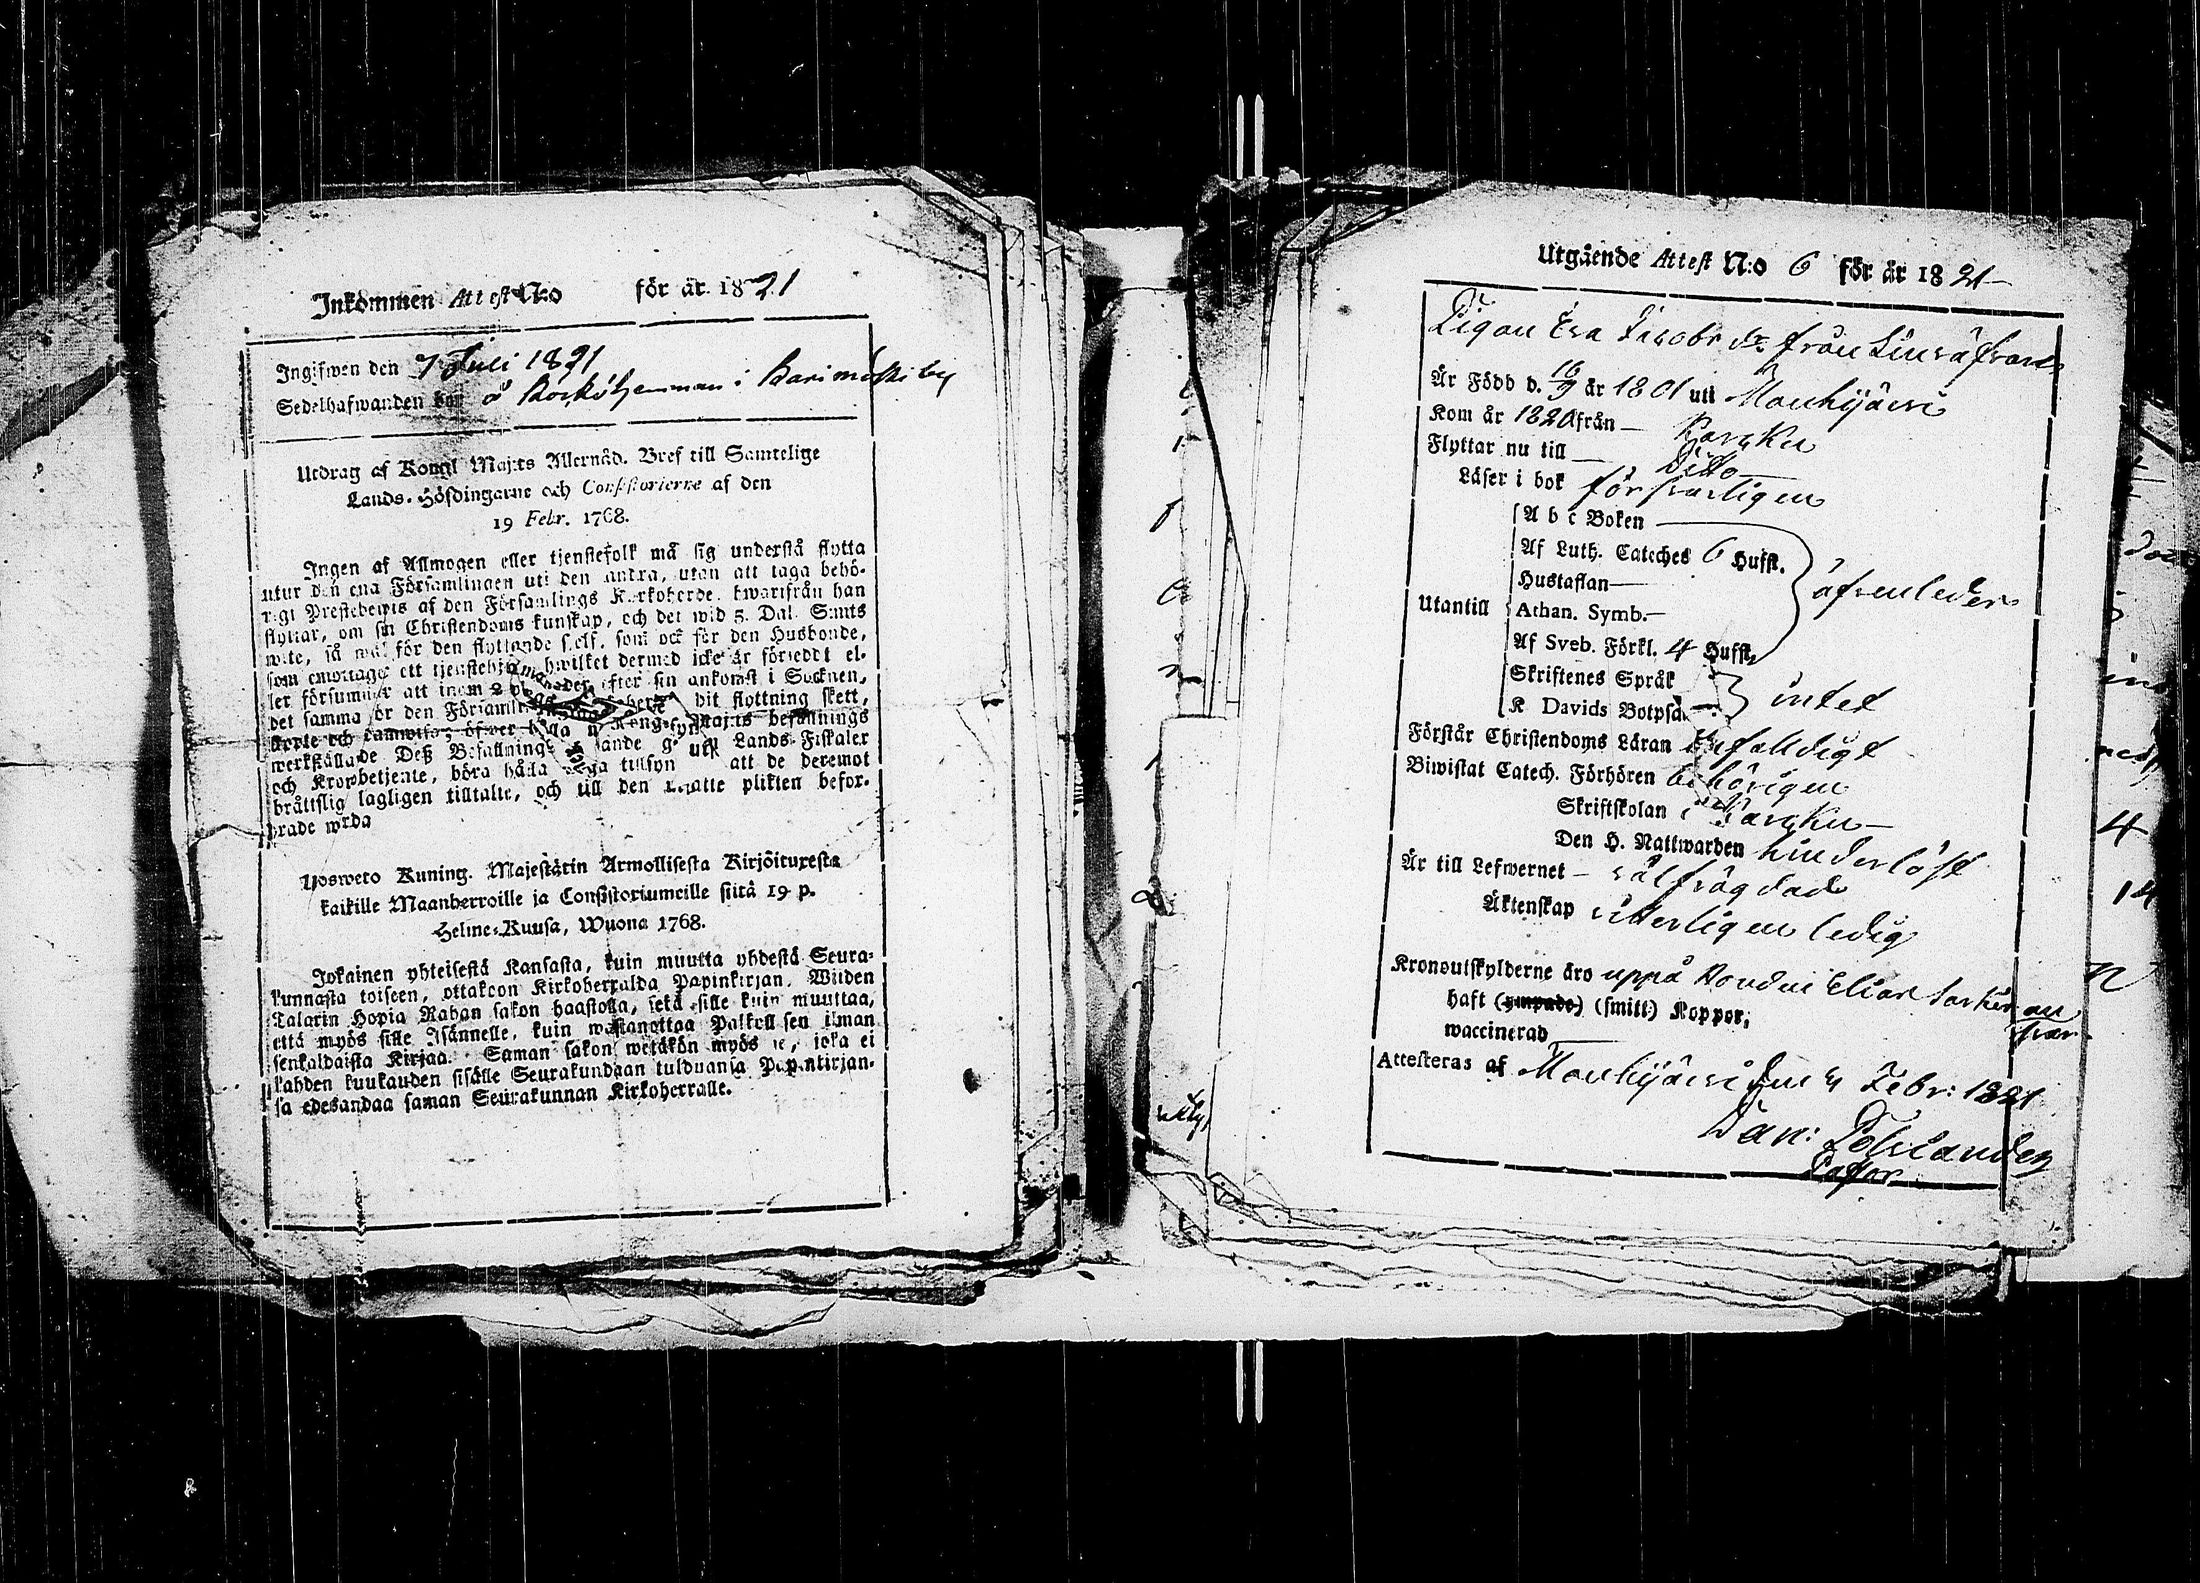 Inkommen Attest N:o för år 1821
Ingifwen den 7 Juli 1821
Sedelhafwanden bor å i Karimäki by
Utdrag af Kongl Maj:ts Allernåd. Bref till Samtelige
Lands-Höfdingarne och Consistorierne af den
19 Febr. 1768.
Ingen af Allmogen eller tjenstefolk må sig understå flytta
utur den ena Församlingen uti den andra, utan att taga behö-
rigt Prestebewis af den Församlings Kyrkoherde, hwarifrån han
flyttar, om sin Christendoms kunskap, och det wid 5. Dal. S:mts
wite, så wäl för den flyttande sjelf, som ock för den Husbonde,
som emottager ett tjenstehjon, hwilket dermed icke är försedt el-
ler försummar att inom 2 månader efter sin ankomst i Socknen,
det samma för den Församlings dit flyttning skett,
Kong. Maj:ts befallnings
werkställande Dess Befallningshafwande Lands-Fiskaler
och Kronobetjente, böra hålla noga tillsyn att de deremot
bråttslig lagligen tilltalte, och till den utsatte plikten befor-
drade warda
Ulosweto Kuning. Majestätin Armollisesta Kirjoituxesta
kaikille Maanherroille ja Consistoriumeille siitä 19 p.
Helme-Kuusa, Wuona 1768.
Jokainen yhteisestä Kansasta, kuin muutta yhdestä Seura-
kunnasta toiseen, ottakoon Kirkoherralda Papinkirjan. Wiiden
Talarin Hopia Rahan sakon haastolla, sekä sille kuin muuttaa,
että myös sille Isännelle, kuin wastanottaa Palkollisen ilman
senkaldaista Kirjaa. Saman sakon wetäkön myös se, joka ei
kahden kuukauden sisälle Seurakundaan tulduansa Papinkirjan-
sa edesandaa saman Seurakunnan Kirkoherralle.
Utgående Attest N:o 6 för år 1821
Pigan Eva Jacobs dr från
Är Född d. 16/9 år 1801 uti Mouhijärvi
Kom år 1820 från Karcku
Flyttar nu till Ditto
Läser i bok försvarligen
A b c Boken
Af Luth. Cateches 6 Hufst.
Hustaflan
Utantill Athan. Symb.
äfvenledes
Af Sveb. Förkl. 4 Hufst.
Skriftenes Språk
intet
K Davids Botpsal.
Förstår Christendoms Läran enfalldigt
Biwistat Catech. Förhören behörigen
Skriftskolan i Karcku
Den H. Nattwarden hinderlöst
Är till Lefwernet välfrägdad
Äktenskap ytterligen ledig
Kronoutskylderne äro uppå Bonden Elias ansvar
haft (ympade) (smitt) Koppor,
waccinerad
Attesteras af Mouhijärvi den 4 Febr: 1821
Dan: Polviander
Pastor